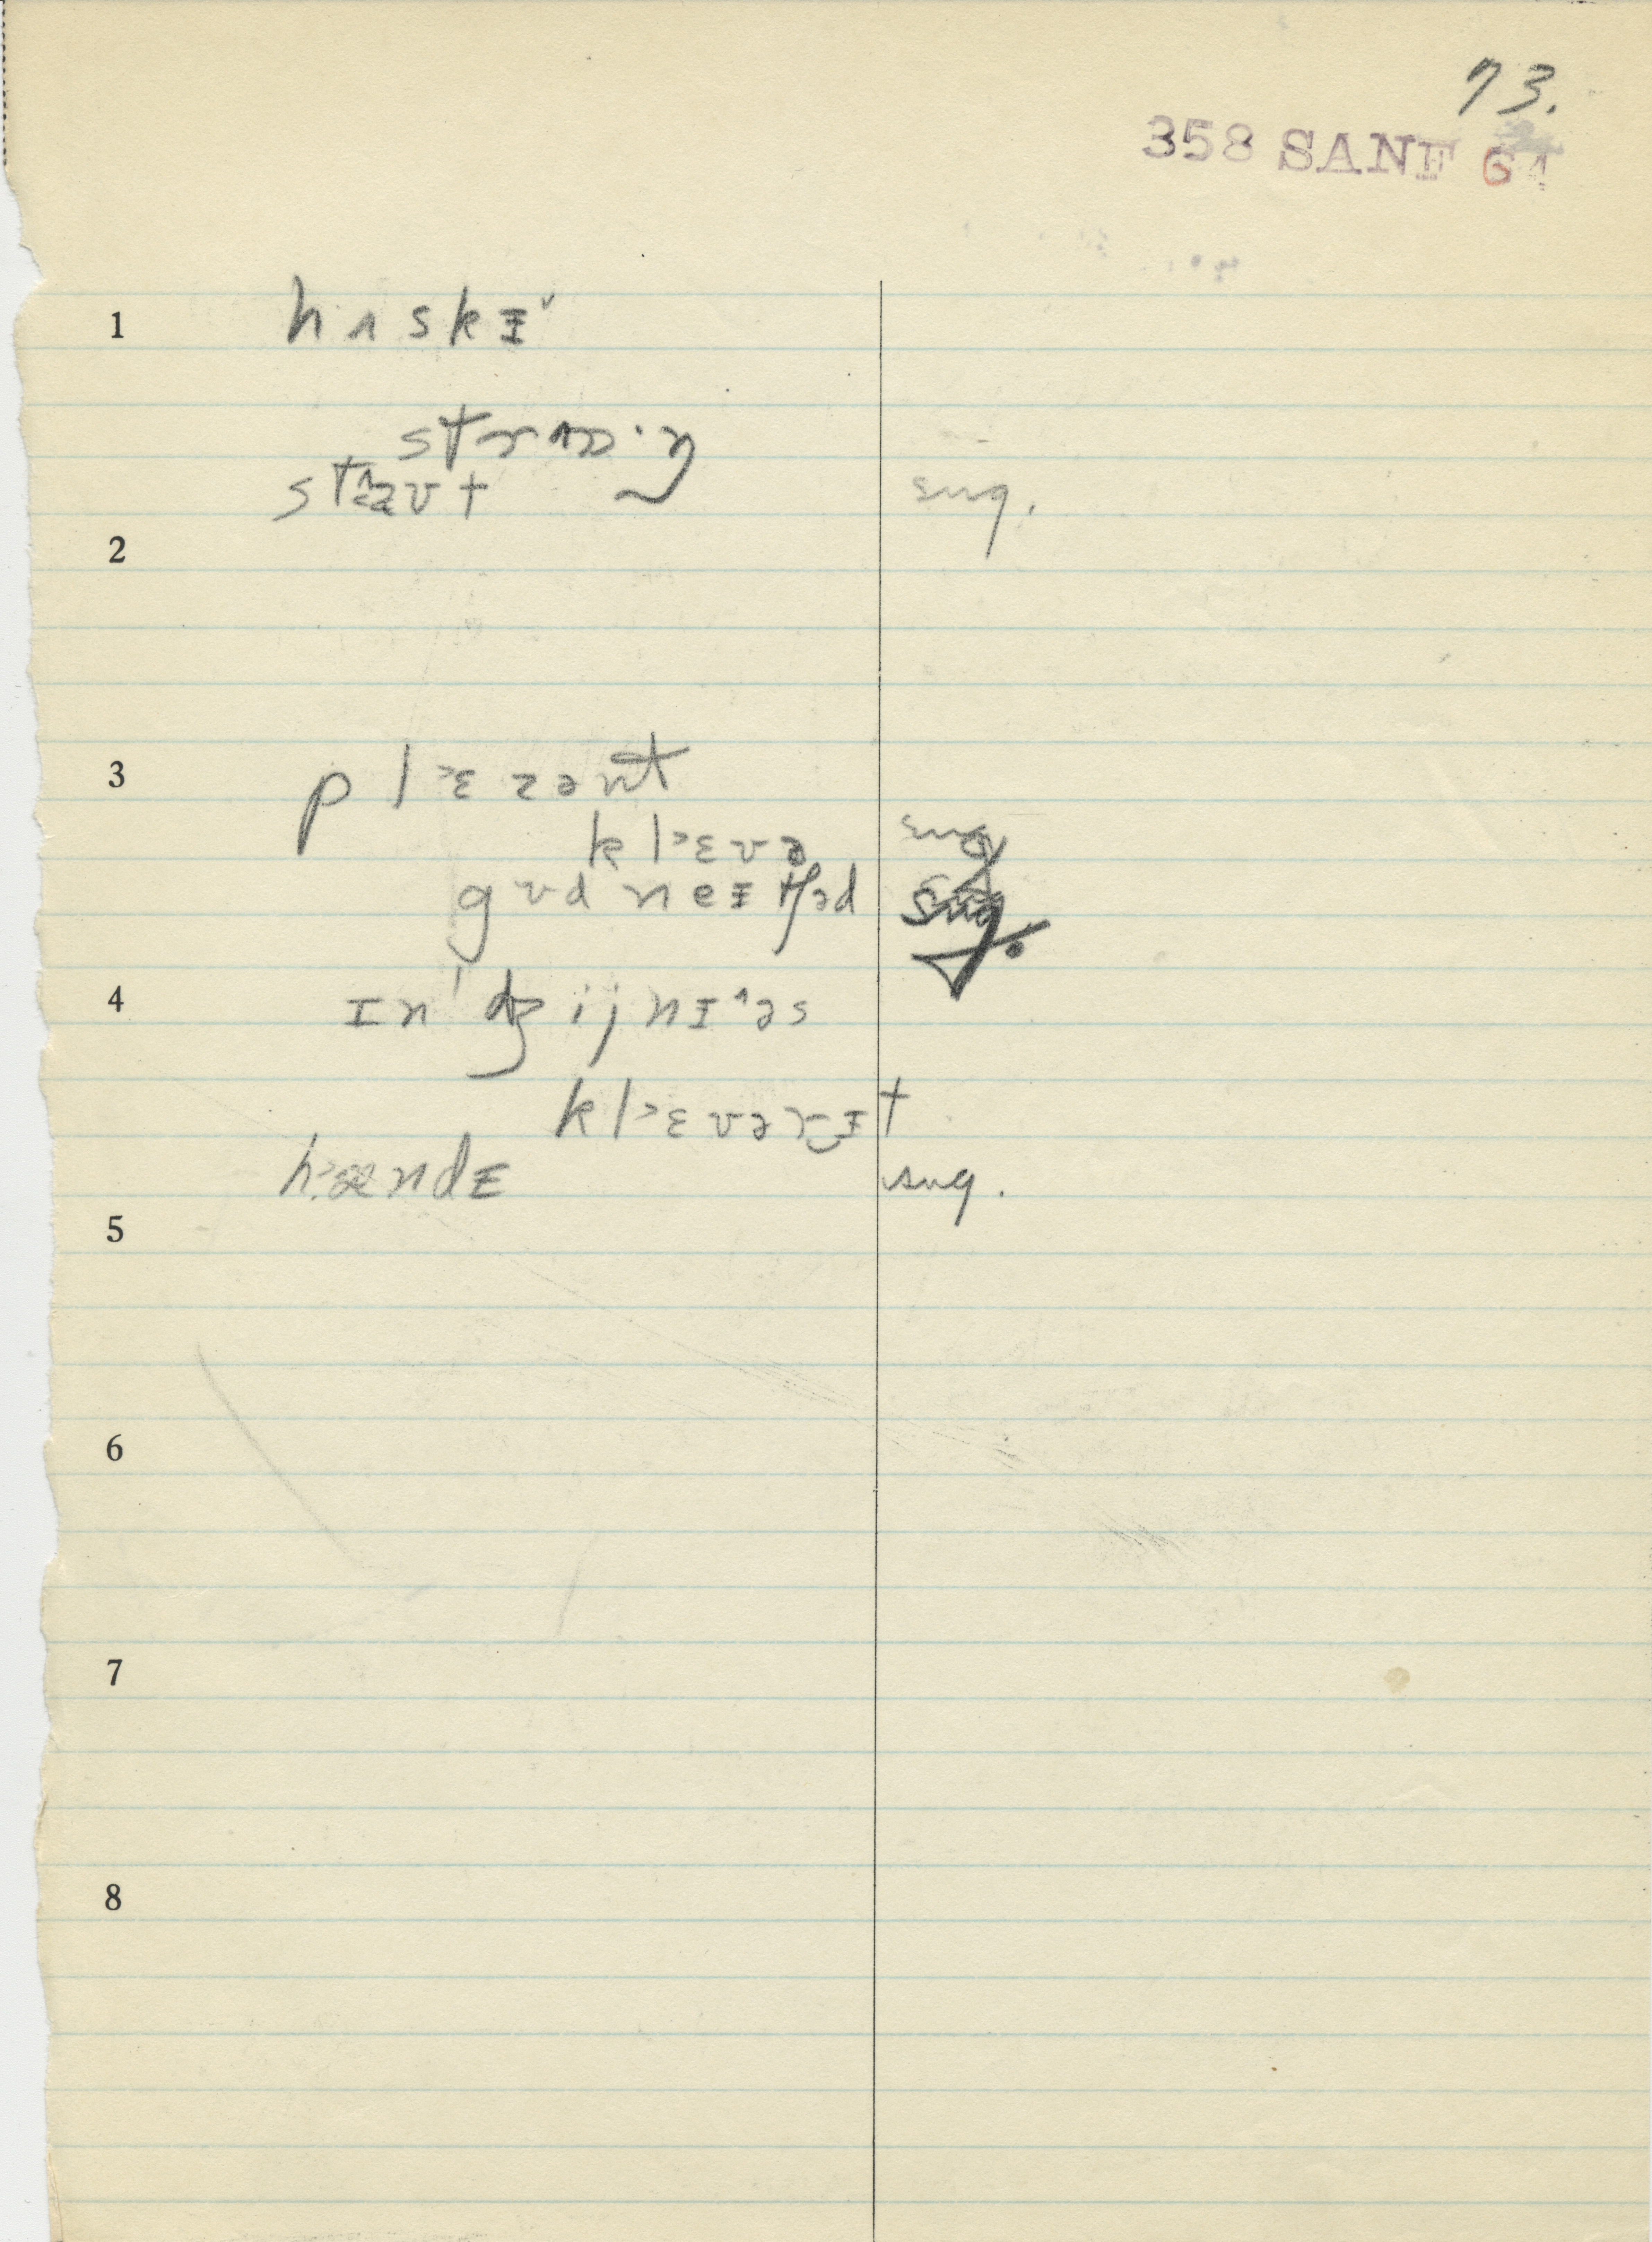 73.
358 SANF 64
1 hʌskᵻ˅
strʌŋ
staʊt sug.
2
3 pl˃ɛzənt
kl˃ɛvə sug
gʊd neᵻtʃəd sug.
4 ɪn'dʒijnᵻ^əs
kl˃ɛvərᵻt
h˃ændᵻ sug.
5
6
7
8